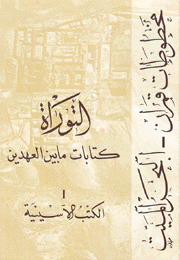 مخطوطات قمران - البحر الميت
التوراة
كتابات ما بين العهدين
١
الكتب الأسينية